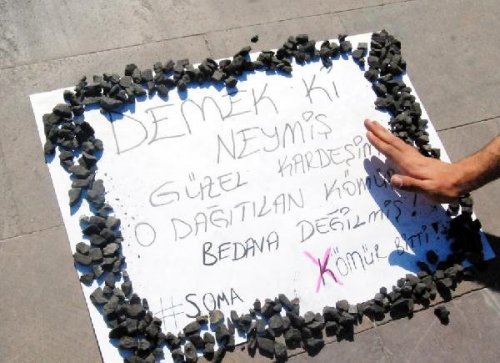 DEMEK Kİ
NEYMİŞ
GÜZEL KARDEŞİM
O DAĞITILAN KÖMÜR
BEDAVA DEĞİLMİŞ!
#SOMA
KÖMÜR BİTTİ!